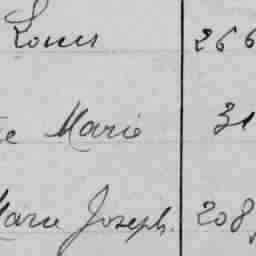 Louis 266
te Marie 31
Marie Joseph. 208